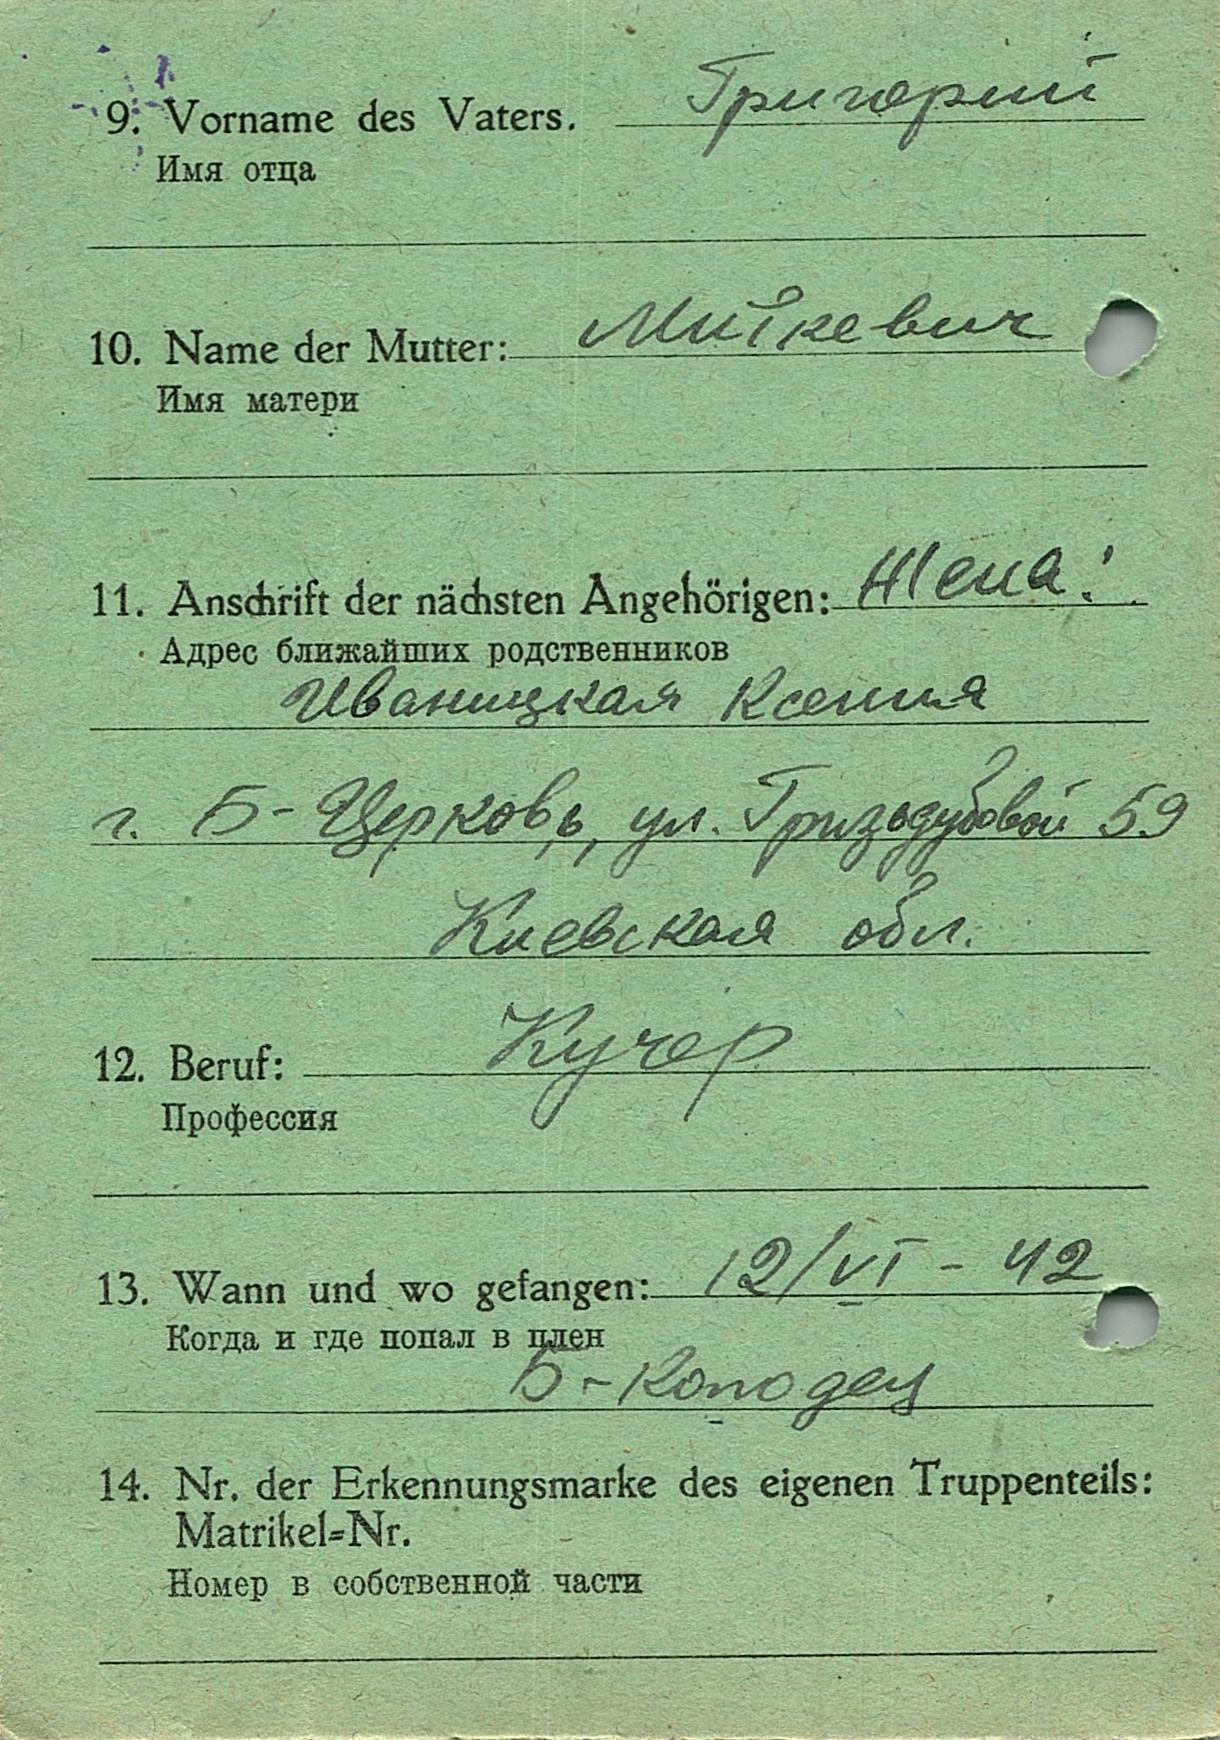 9. Vorname des Vaters. Григорий
Имя отца
10. Name der Mutter: Миткевич
Имя матери
11. Anschrift der nächsten Angehörigen: Жена:
Адрес ближайших родственников
Иваницкая Ксения
г. Б-Церковь, ул. Гризодубовой 59
Киевская обл.
12. Beruf: Кучер
Профессия
13. Wann und wo gefangen: 12/VI - 42
Когда и где попал в плен
Б-Колодец
14. Nr. der Erkennungsmarke des eigenen Truppenteils:
Matrikel=Nr.
Номер в собственной части